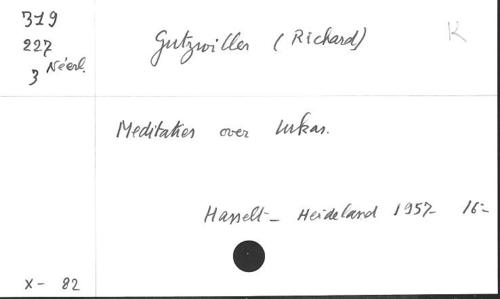 319
227
3 Néerl.
Gutzwiller (Richard)
K
Meditaties over Lukas.
Hasselt - Heideland 1957 - 16=
X - 82